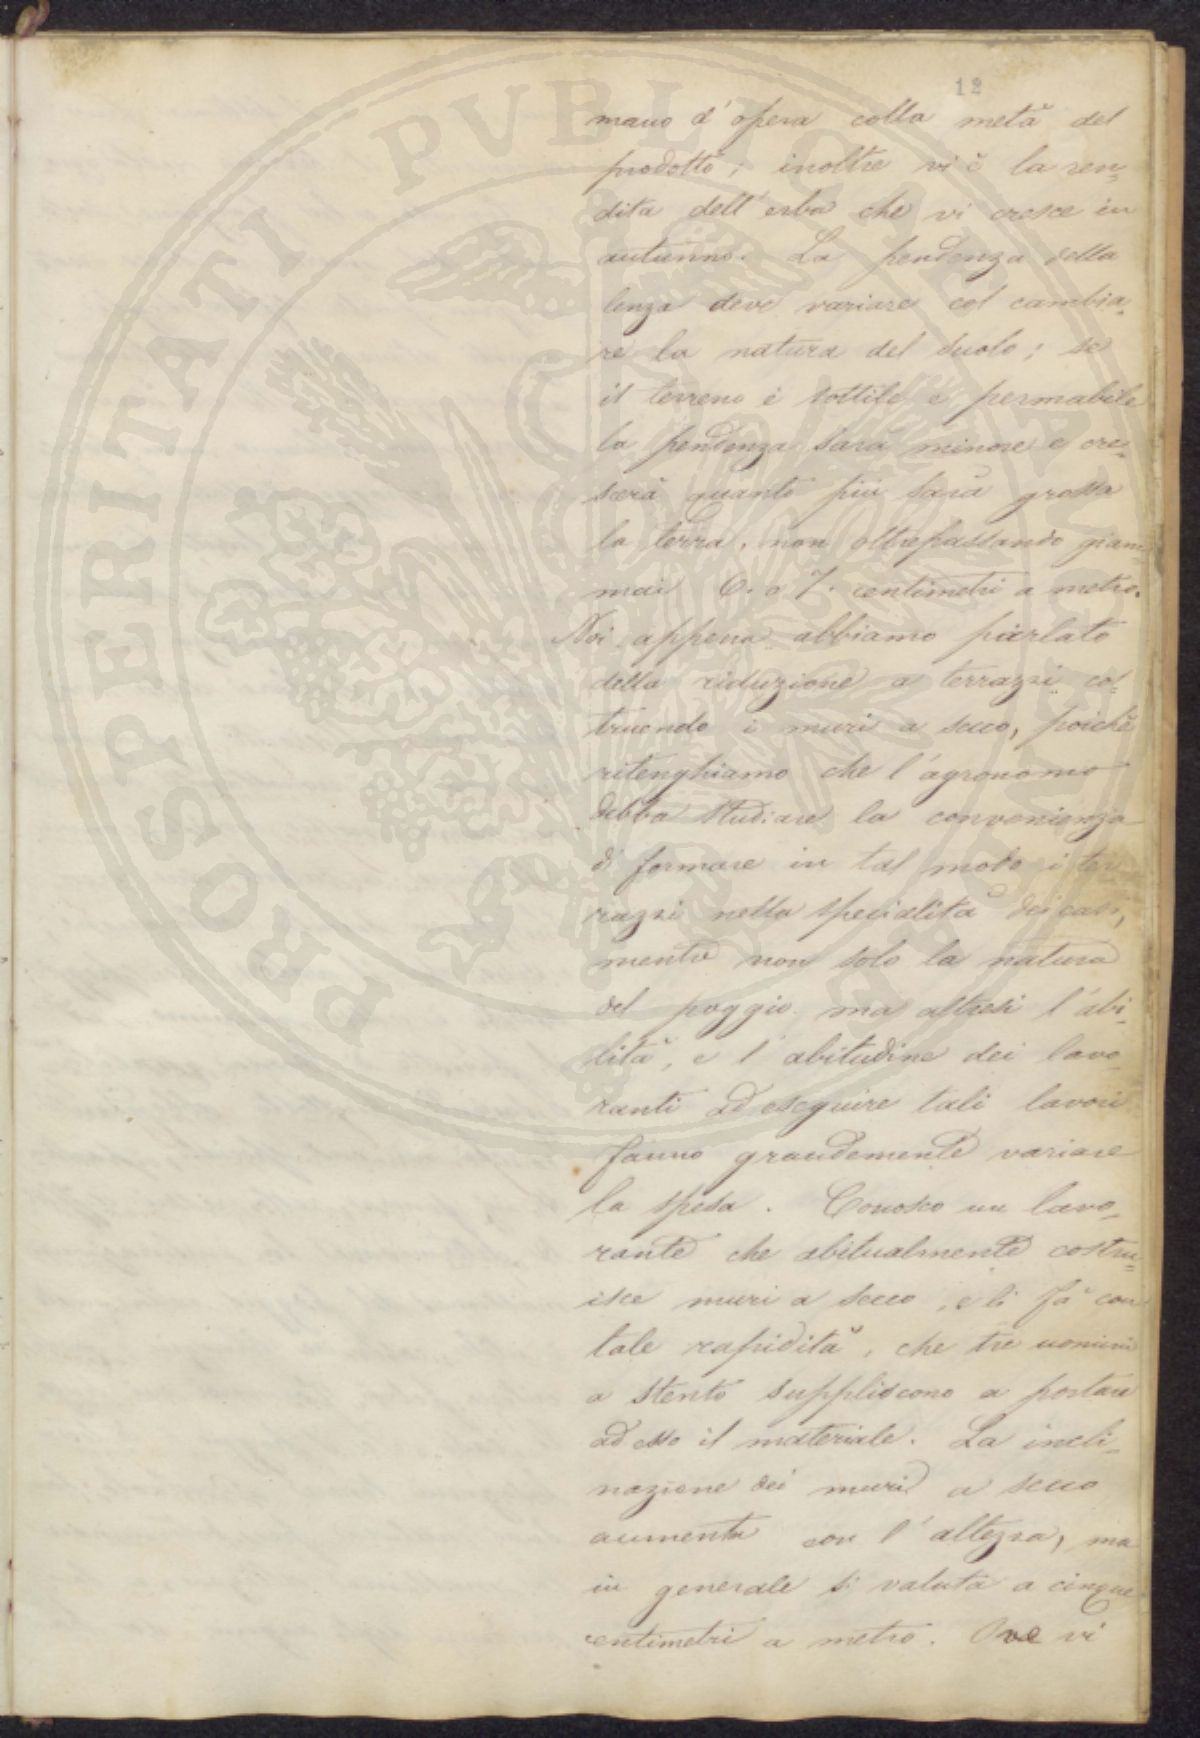 12
mano d'opera colla metà del
prodotto; inoltre vi è la ren=
dita dell'erba che vi cresce in
autunno. La pendenza della
lenza deve variare col cambia=
re la natura del suolo; se
il terreno è sottile e permabile
la pendenza sarà minore e cre=
scerà quanto più sarà grossa
la terra, non oltrepassando giam
mai 6. o 7. centimetri a metro.
Noi appena abbiamo parlato
della riduzione a terrazzi cos=
truendo i muri a secco, poichè
ritenghiamo che l'agronomo
debba studiare la convenienza
di formare in tal modo i ter
razzi nella specialità dei casi,
mentre non solo la natura
del poggio ma altresi l'abi=
lità, e l'abitudine dei lavo
ranti ad eseguire tali lavori
fanno grandemente variare
la spesa. Conosco un lavo=
rante che abitualmente costru=
isce muri a secco, e li fà con
tale rapidità, che tre uomini
a stento suppliscono a portare
ad esso il materiale. La incli=
nazione dei muri a secco
aumenta con l'altezza, ma
in generale si valuta a cinque
centimetri a metro. Ove vi
PROSPERITATI PVBLICAE AVGENDAE